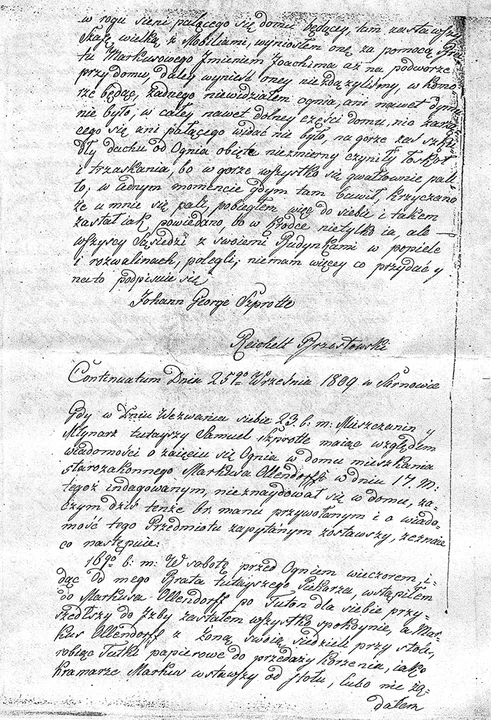 w rogu sieni palącego się domu będący, tam zastawszy
Szafę wielką z Mobiliami, wyniosłem onę za pomocą Bra-
tu Markusowego Imieniem Joachima aż na podworze
przy domu, daley wynieść oney niezdążyliśmy, w komo-
rze będąc, żadnego niewidziałem ognia, ani nawet dymu
nie było, w całey nawet dolney części domu, nic żarzą-
cego się ani palącego widać nie było, na gorze zaś szku-
dły dachu od Ognia obięte niezmierny czyniły łoskot
i trzaskania, bo w gorze wszystko się gwałtownie pali-
ło, w iednym momencie gdym tam bawił, krzyczano
że u mnie się pali, pobiegłem więc do siebie i takem
zastał iak powiedano, bo w krodce nietylko ia, ale
wszyscy Sąsiedzi z swoiemi Budynkami w popiele
i rozwalinach, polegli, niemam więcey co przydać y
na to podpisuie się
Johann George Szprotte
Reichelt Brzostowski
Continuatum Dnia 25go Września 1809 w Sarnowie
Gdy w Dniu Wezwania siebie 23. b. m: Mieszczanin y
Młynarz tutayszy Samuel Szprotte maiąc względem
wiadomości o zaięciu się Ognia w domu mieszkania
starozakonnego Markusa Ollendorff w dniu 17 m:
tegoż indagowanym, nieznaydował się w domu, za-
czym dziś tenże br manu przywołanym i o wiado-
mość tego Przedmiotu zapytanym zostawszy, zeznaie
co następuie:
16go b: m: W sobotę przed Ogniem wieczorem, i-
dąc od mego Brata tutayszego Piekarza, wstąpiłem
do Markusa Ollendorff po Tutoń dla siebie przy-
szedłszy do Izby zastałem wszystko spokoynie, a Mar-
kus Ollendorff z Żoną swoią siedzieli przy stole,
robiąc Tutki papierowe do przedaży korzenia, iako
kramarze Markus wstawszy od stołu, lubo nie żą-
dałem